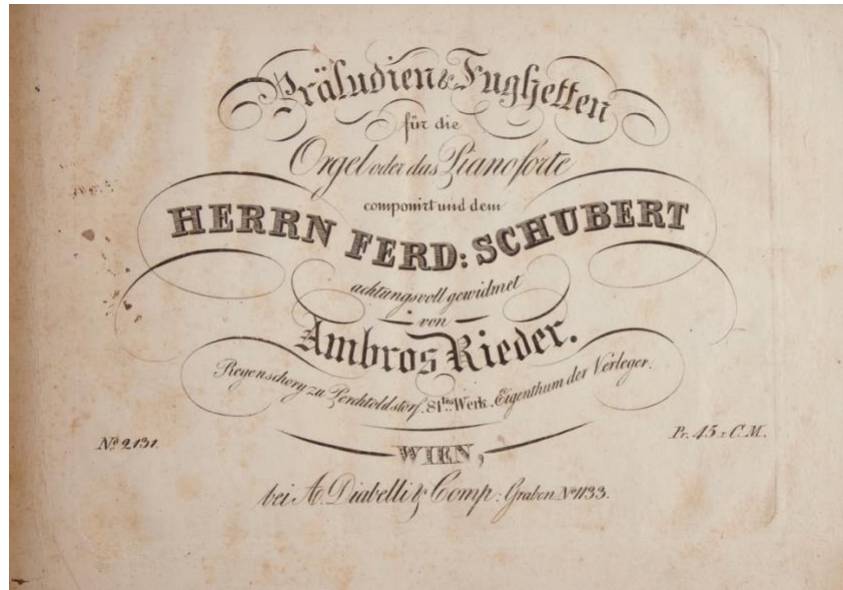 Präludien & Fughetten
für die
Orgel oder das Pianoforte
componirt und dem
HERRN FERD: SCHUBERT
achtungsvoll gewidmet
von
Ambros Rieder.
Regenschory zu Perchtoldstorf. 81tes Werk. Eigenthum der Verleger.
No 2131.
Pr. 45 x C.M.
WIEN,
bei A. Diabelli & Comp: Graben No 1133.